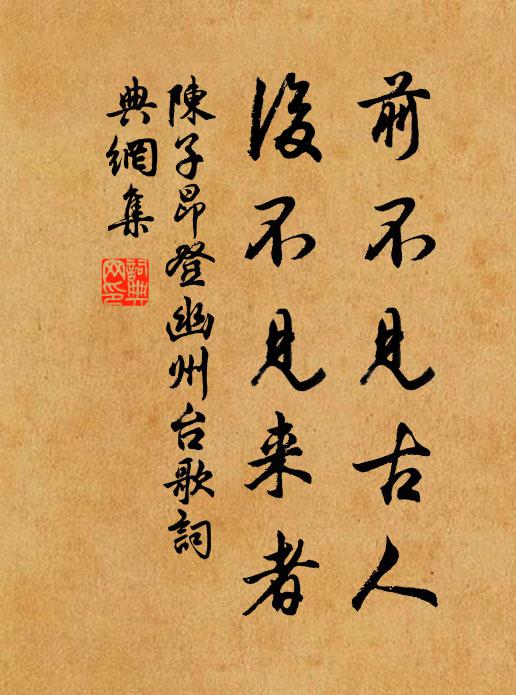 前不見古人
後不見来者
陳子昂登幽州台歌詞
典網集
詞典
网印